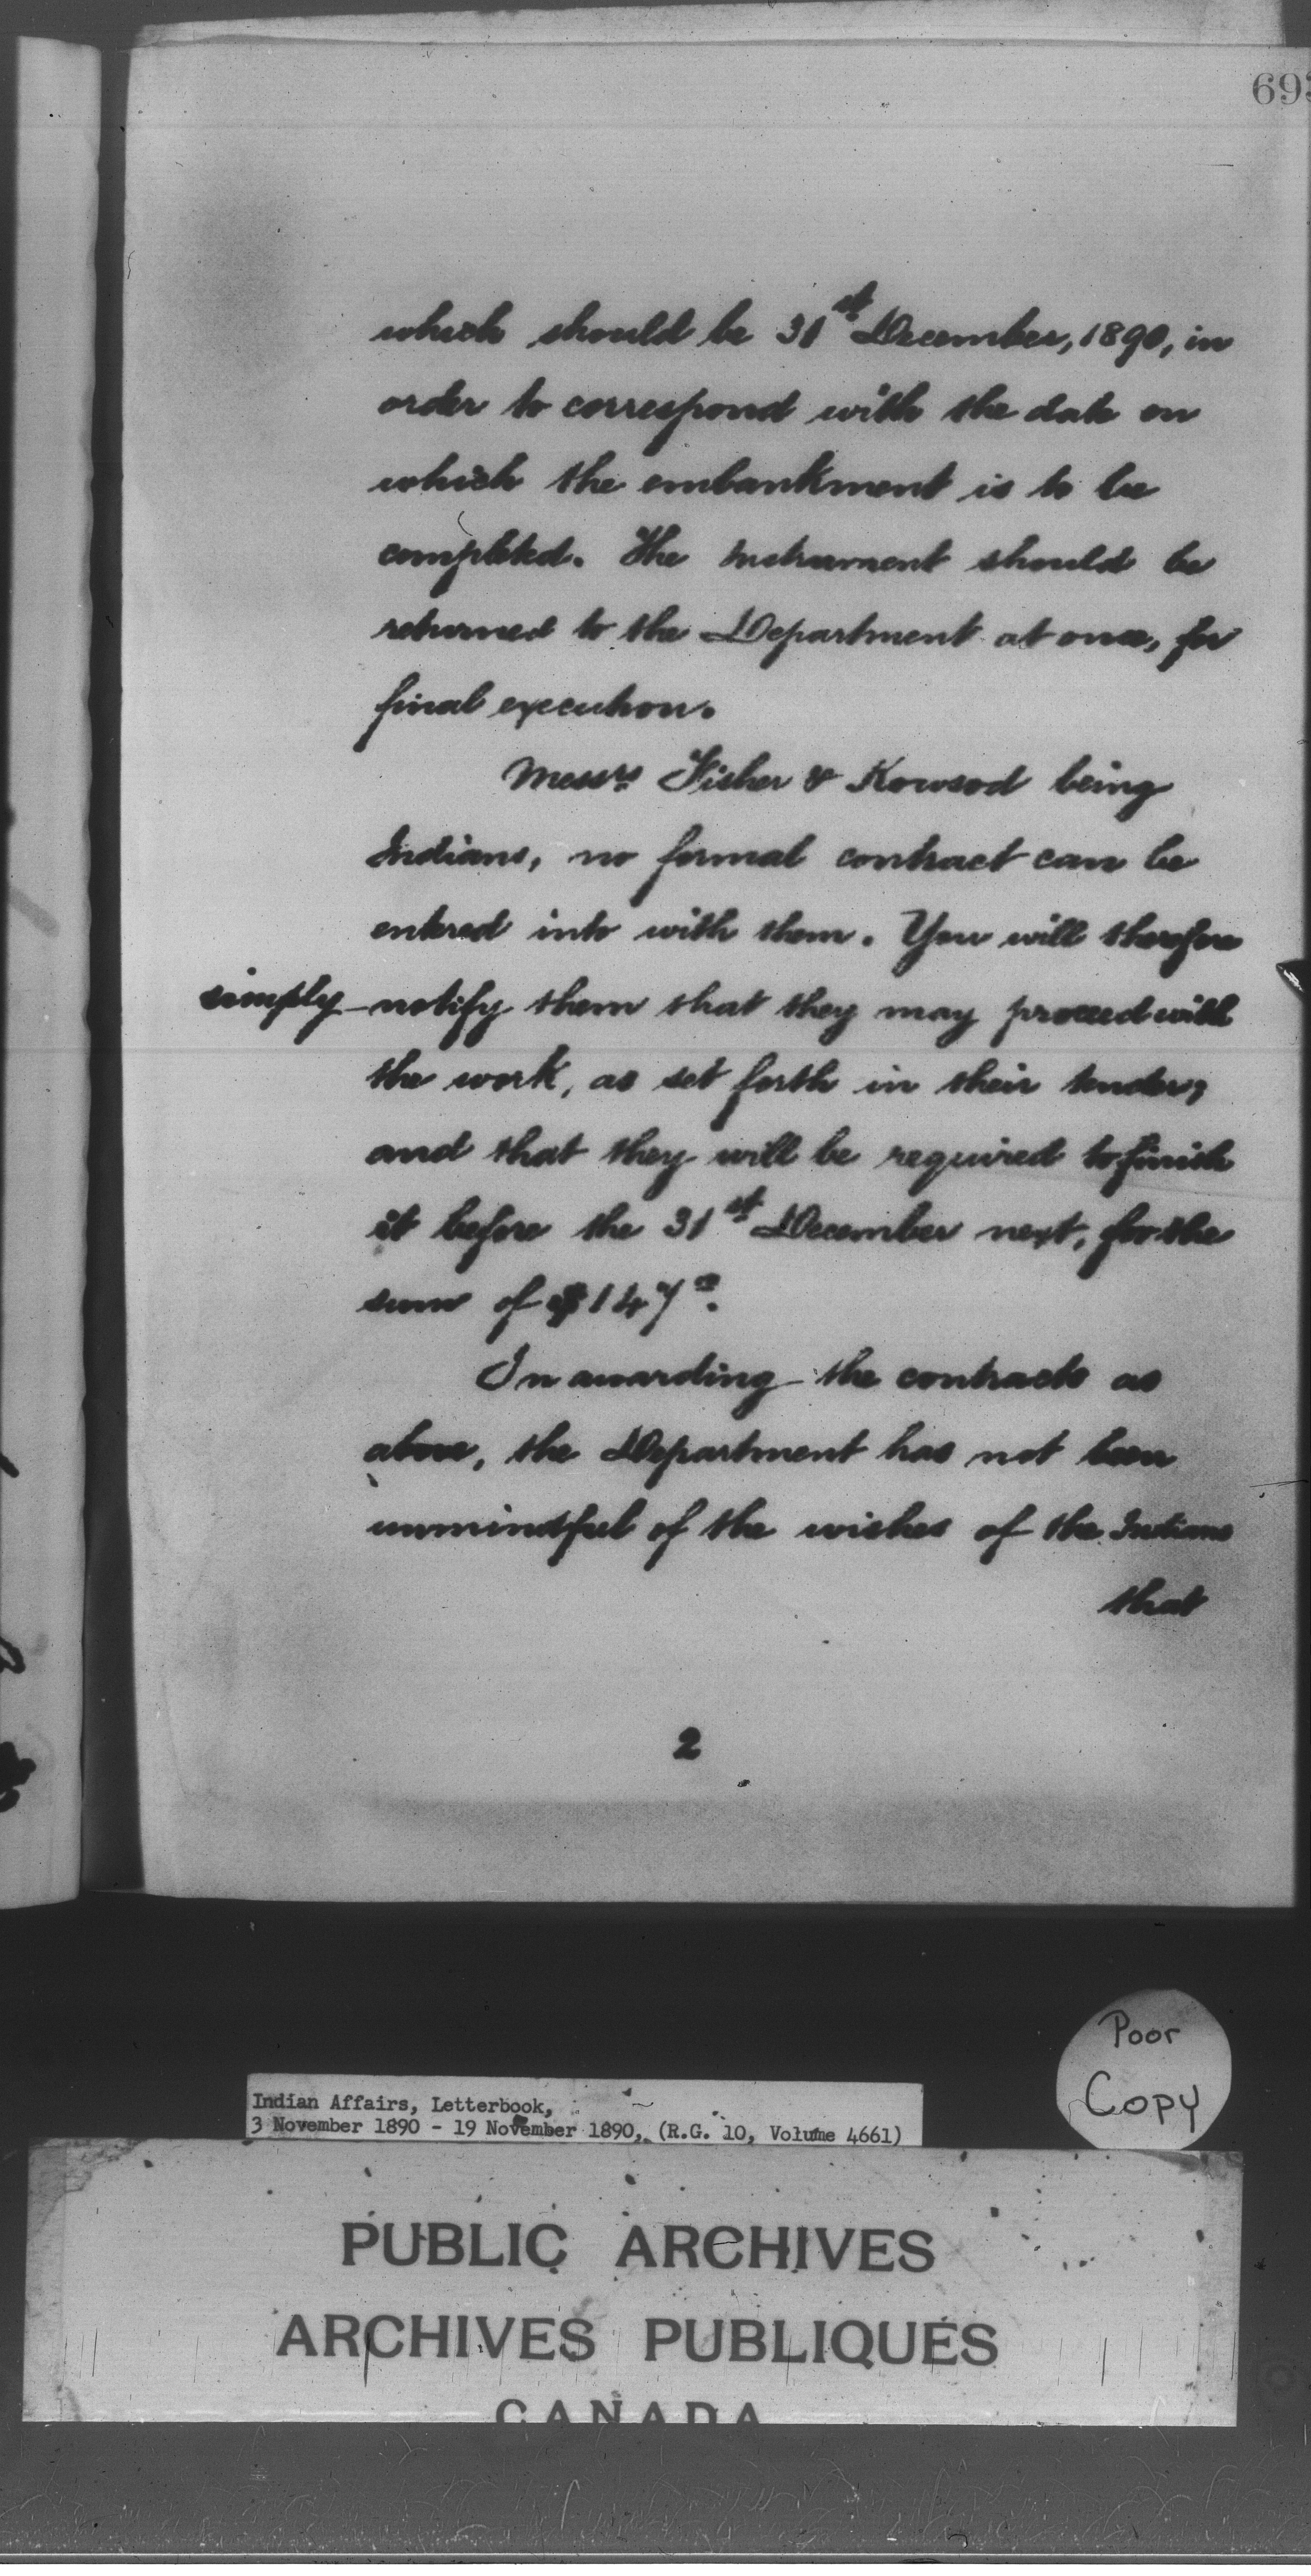 69
which should be 31st December, 1890, in
order to correspond with the date on
which the embankment is to be
completed. The Instrument should be
returned to the Department at once, for
final execution.
Messrs Fisher & Kowsod being
Indians, no formal contract can be
entered into with them. You will therefore
simply notify them that they may proceed with
the work, as set forth in their tender,
and that they will be required to finish
it before the 31st December next, for the
sum of $147
In awarding the contracts as
above, the Department has not been
unmindful of the wishes of the Indians
that
2
Poor
Copy
Indian Affairs, Letterbook,
3 November 1890 - 19 November 1890, (R.G. 10, Volume 4661)
PUBLIC ARCHIVES
ARCHIVES PUBLIQUES
CANADA